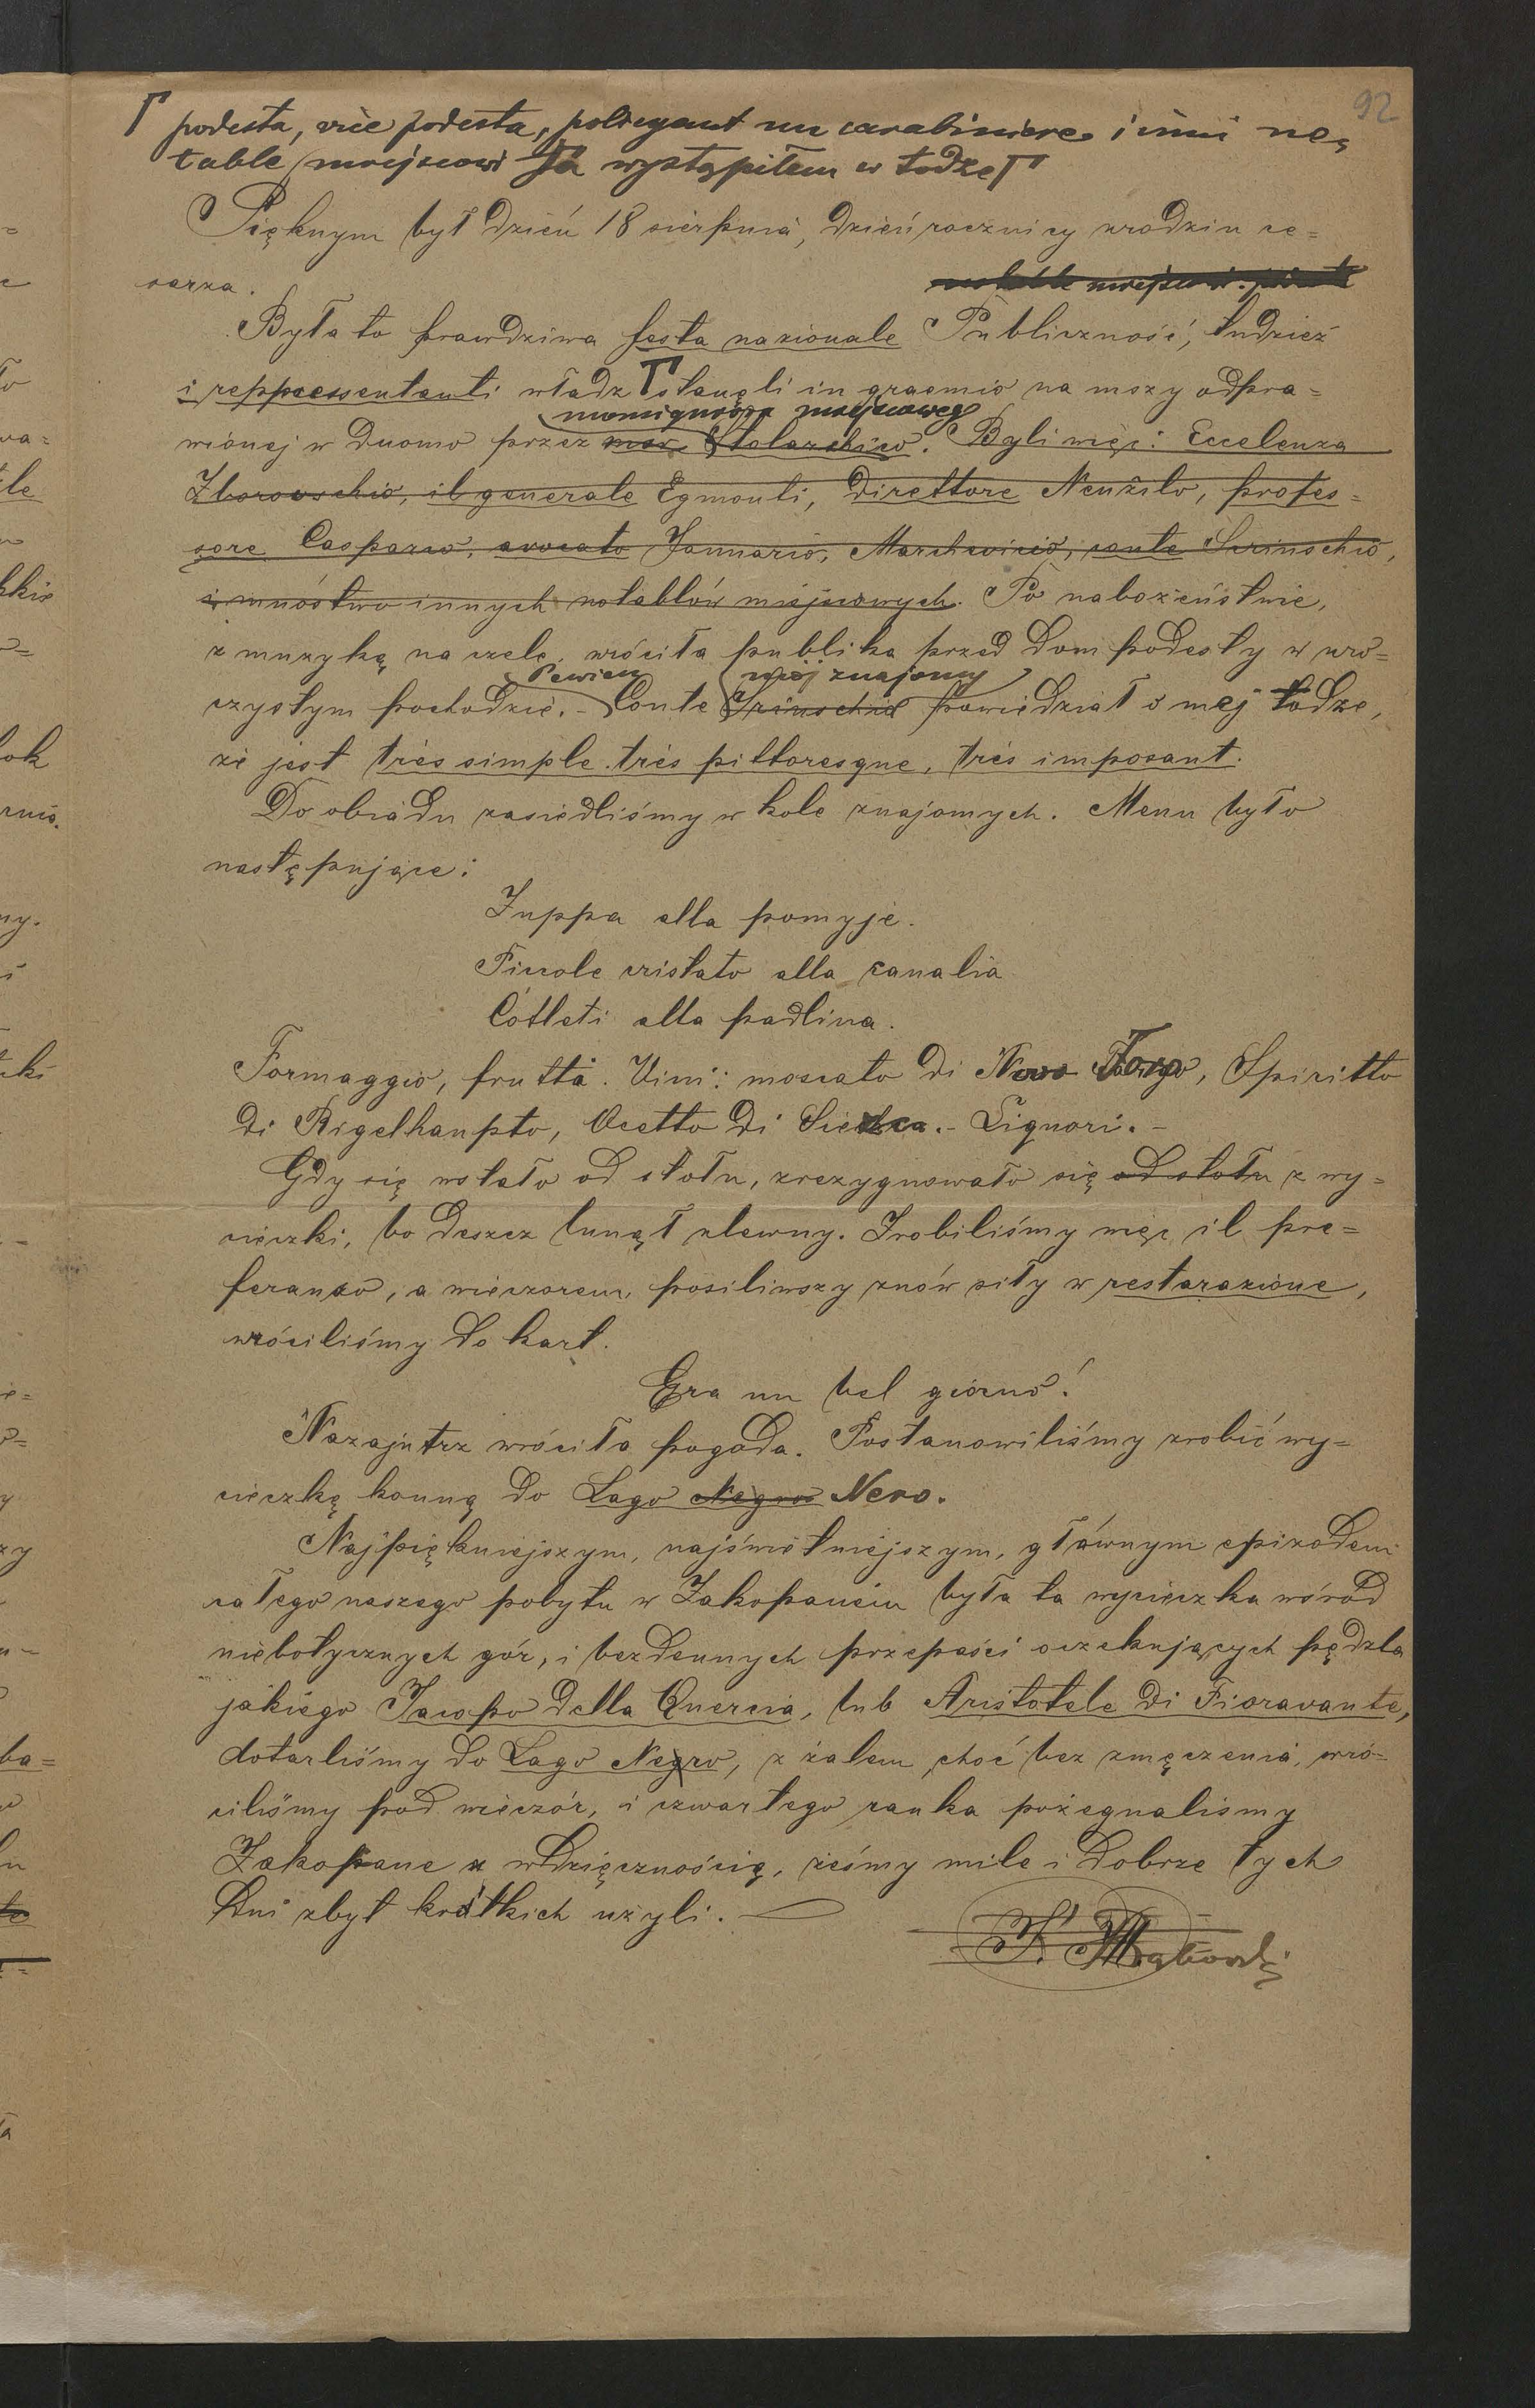 92
podesta, vice podesta, policyant un carabiniere i inni no=
table miejscowi Ja wystąpiłem w todze
Pięknym był dzień 18 sierpnia, dzień rocznicy urodzin ce=
sarza.
notable miejscowi.
Była to prawdziwa festa nazionale Publiczność, tudzież
i reppressentanti władz stanęli in graemio na mszy odpra=
monsignora miejscowego
wionej w Duomo przez Stolarchio. Byli więc: Eccelenza
Zborowschio, il generale Egmonti, Direttore Nenżilo, profes=
sore Casparro, avocato Januario, Marchwicio, conte Scrinschio,
i mnóstwo innych notablów miejscowych. Po nabożeństwie,
z muzyką na czele, wróciła publika przed Dom podesty w uro=
Pewien mój znajomy
czystym pochodzie. - Conte Scrinschio powiedział o mej todze,
że jest très simple très pittoresque, très imposant.
Do obiadu zasiedliśmy w kole znajomych. Menu było
następujące:
Zuppa alla pomyje.
Piccole cristato alla canalia
Cótleti alla padlina.
Formaggio, frutta. Vini: moscato di Novo Torgo, Spiritto
di Rigelhaupto, Ocetto di . - Liquori. -
Gdy się wstało od stołu, zrezygnowało się od stołu z wy=
cieczki, bo deszcz lunął ulewny. Zrobiliśmy więc il pre=
feranzo, a wieczorem, posiliwszy znów siły w restarazione,
wróciliśmy do kart.
Era un bel giorno!
Nazajutrz wróciła pogoda. Postanowiliśmy zrobić wy=
cieczkę konną do Lago Negro Nero.
Najpiękniejszym, najświetniejszym, głównym epizodem
całego naszego pobytu w Zakopanem była ta wycieczka wśród
niebotycznych gór, i bezdennych przepaści oczekujących pędzla
jakiego Jacopo della Quercia, lub Aristotele di Fioravante,
dotarliśmy do Lago Negro, z żalem choć bez zmęczenia, wró=
ciliśmy pod wieczór, i czwartego ranka pożegnalismy
Zakopane z wdzięcznością, żeśmy mile i dobrze tych
dni zbyt krótkich użyli. —